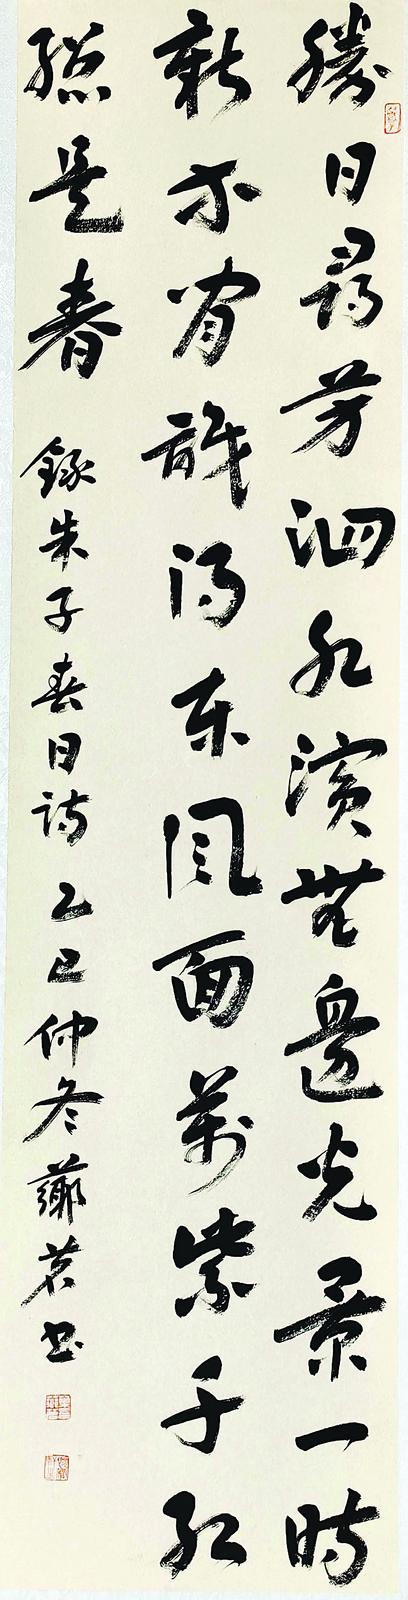 勝日尋芳泗水濱無邊光景一時
新等閒識得東風面萬紫千紅
總是春
錄朱子春日詩乙巳仲冬薌茗書